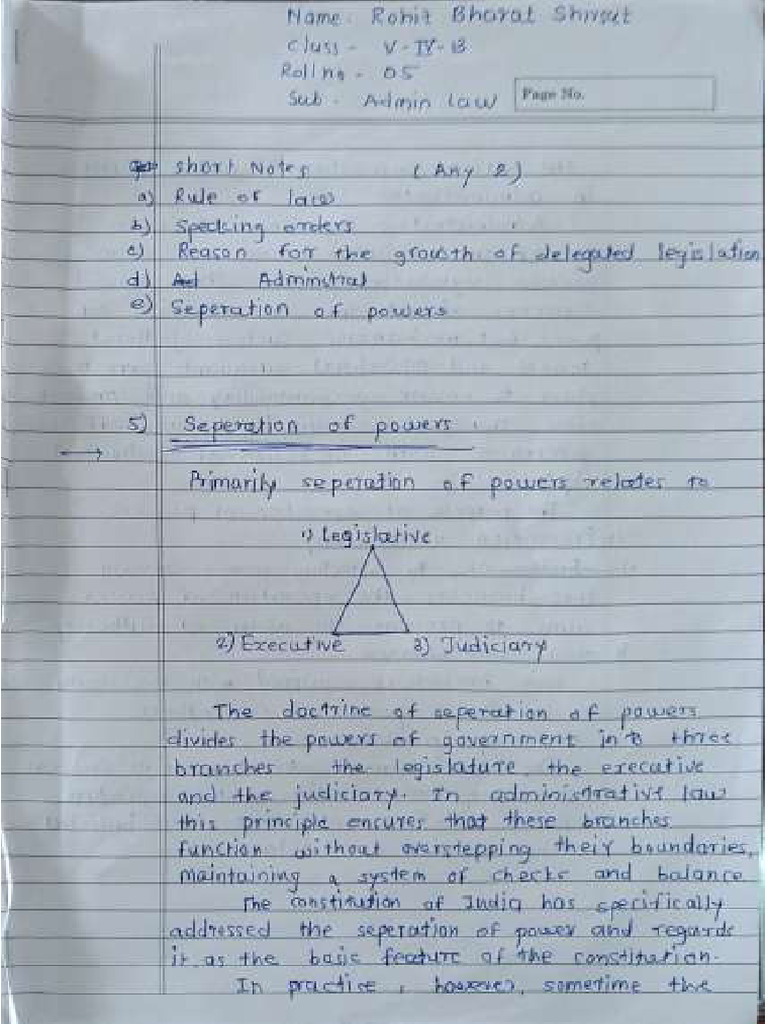 Name - Rohit Bharat Shirsat
Class - V-IV-B
Roll no - 05
Sub - Admin law
Page No.
short Notes (Any 2)
a) Rule of law
b) Specking orders
c) Reason for the growth of delegated legislation
d) Adminstrat
e) Seperation of powers
5) Seperation of powers
→
Primarily seperation of powers relates to
1) Legislative
2) Executive 3) Judiciary
The doctrine of seperation of powers
divides the powers of government into three
branches : the legislature, the executive
and the judiciary. In administrative law
this principle encures that these branches
function without overstepping their boundaries,
maintaining a system of checks and balance
The constitution of India has specifically
addressed the seperation of power and regards
it as the basic feature of the constitution.
In practice, however, sometime the